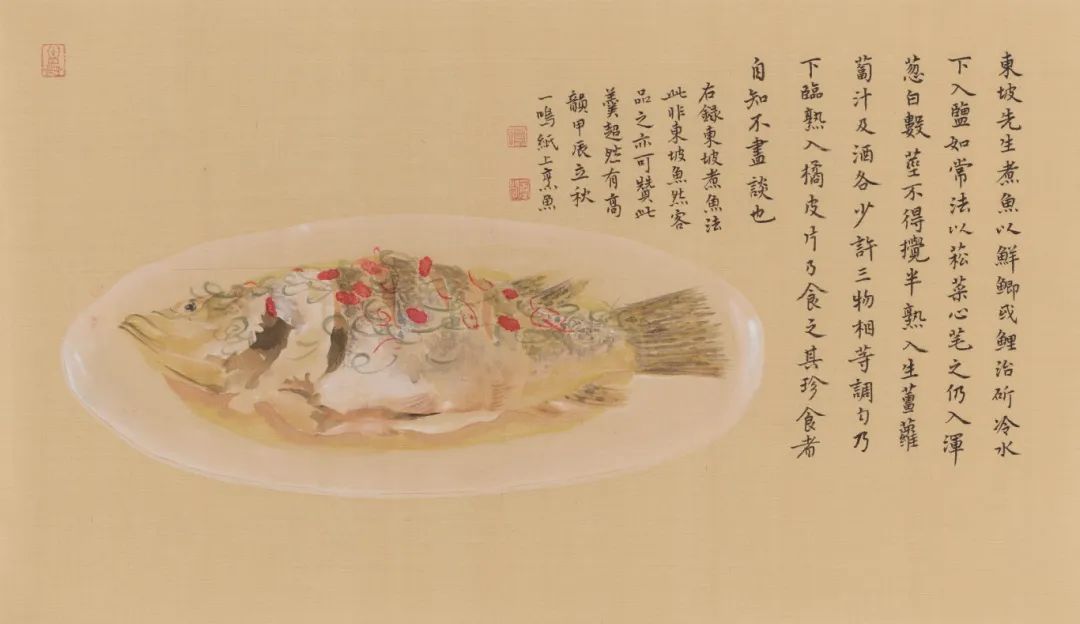 東坡先生煮魚以鮮鯽或鯉治斫冷水
下入鹽如常法以菘菜心芼之仍入渾
葱白數莖不得攪半熟入生薑蘿
蔔汁及酒各少許三物相等調勻乃
下臨熟入橘皮片乃食之其珍食者
自知不盡談也
右録東坡煮魚法
此非東坡魚然客
品之亦可贊此
羹超然有高
韻甲辰立秋
一鳴紙上烹魚